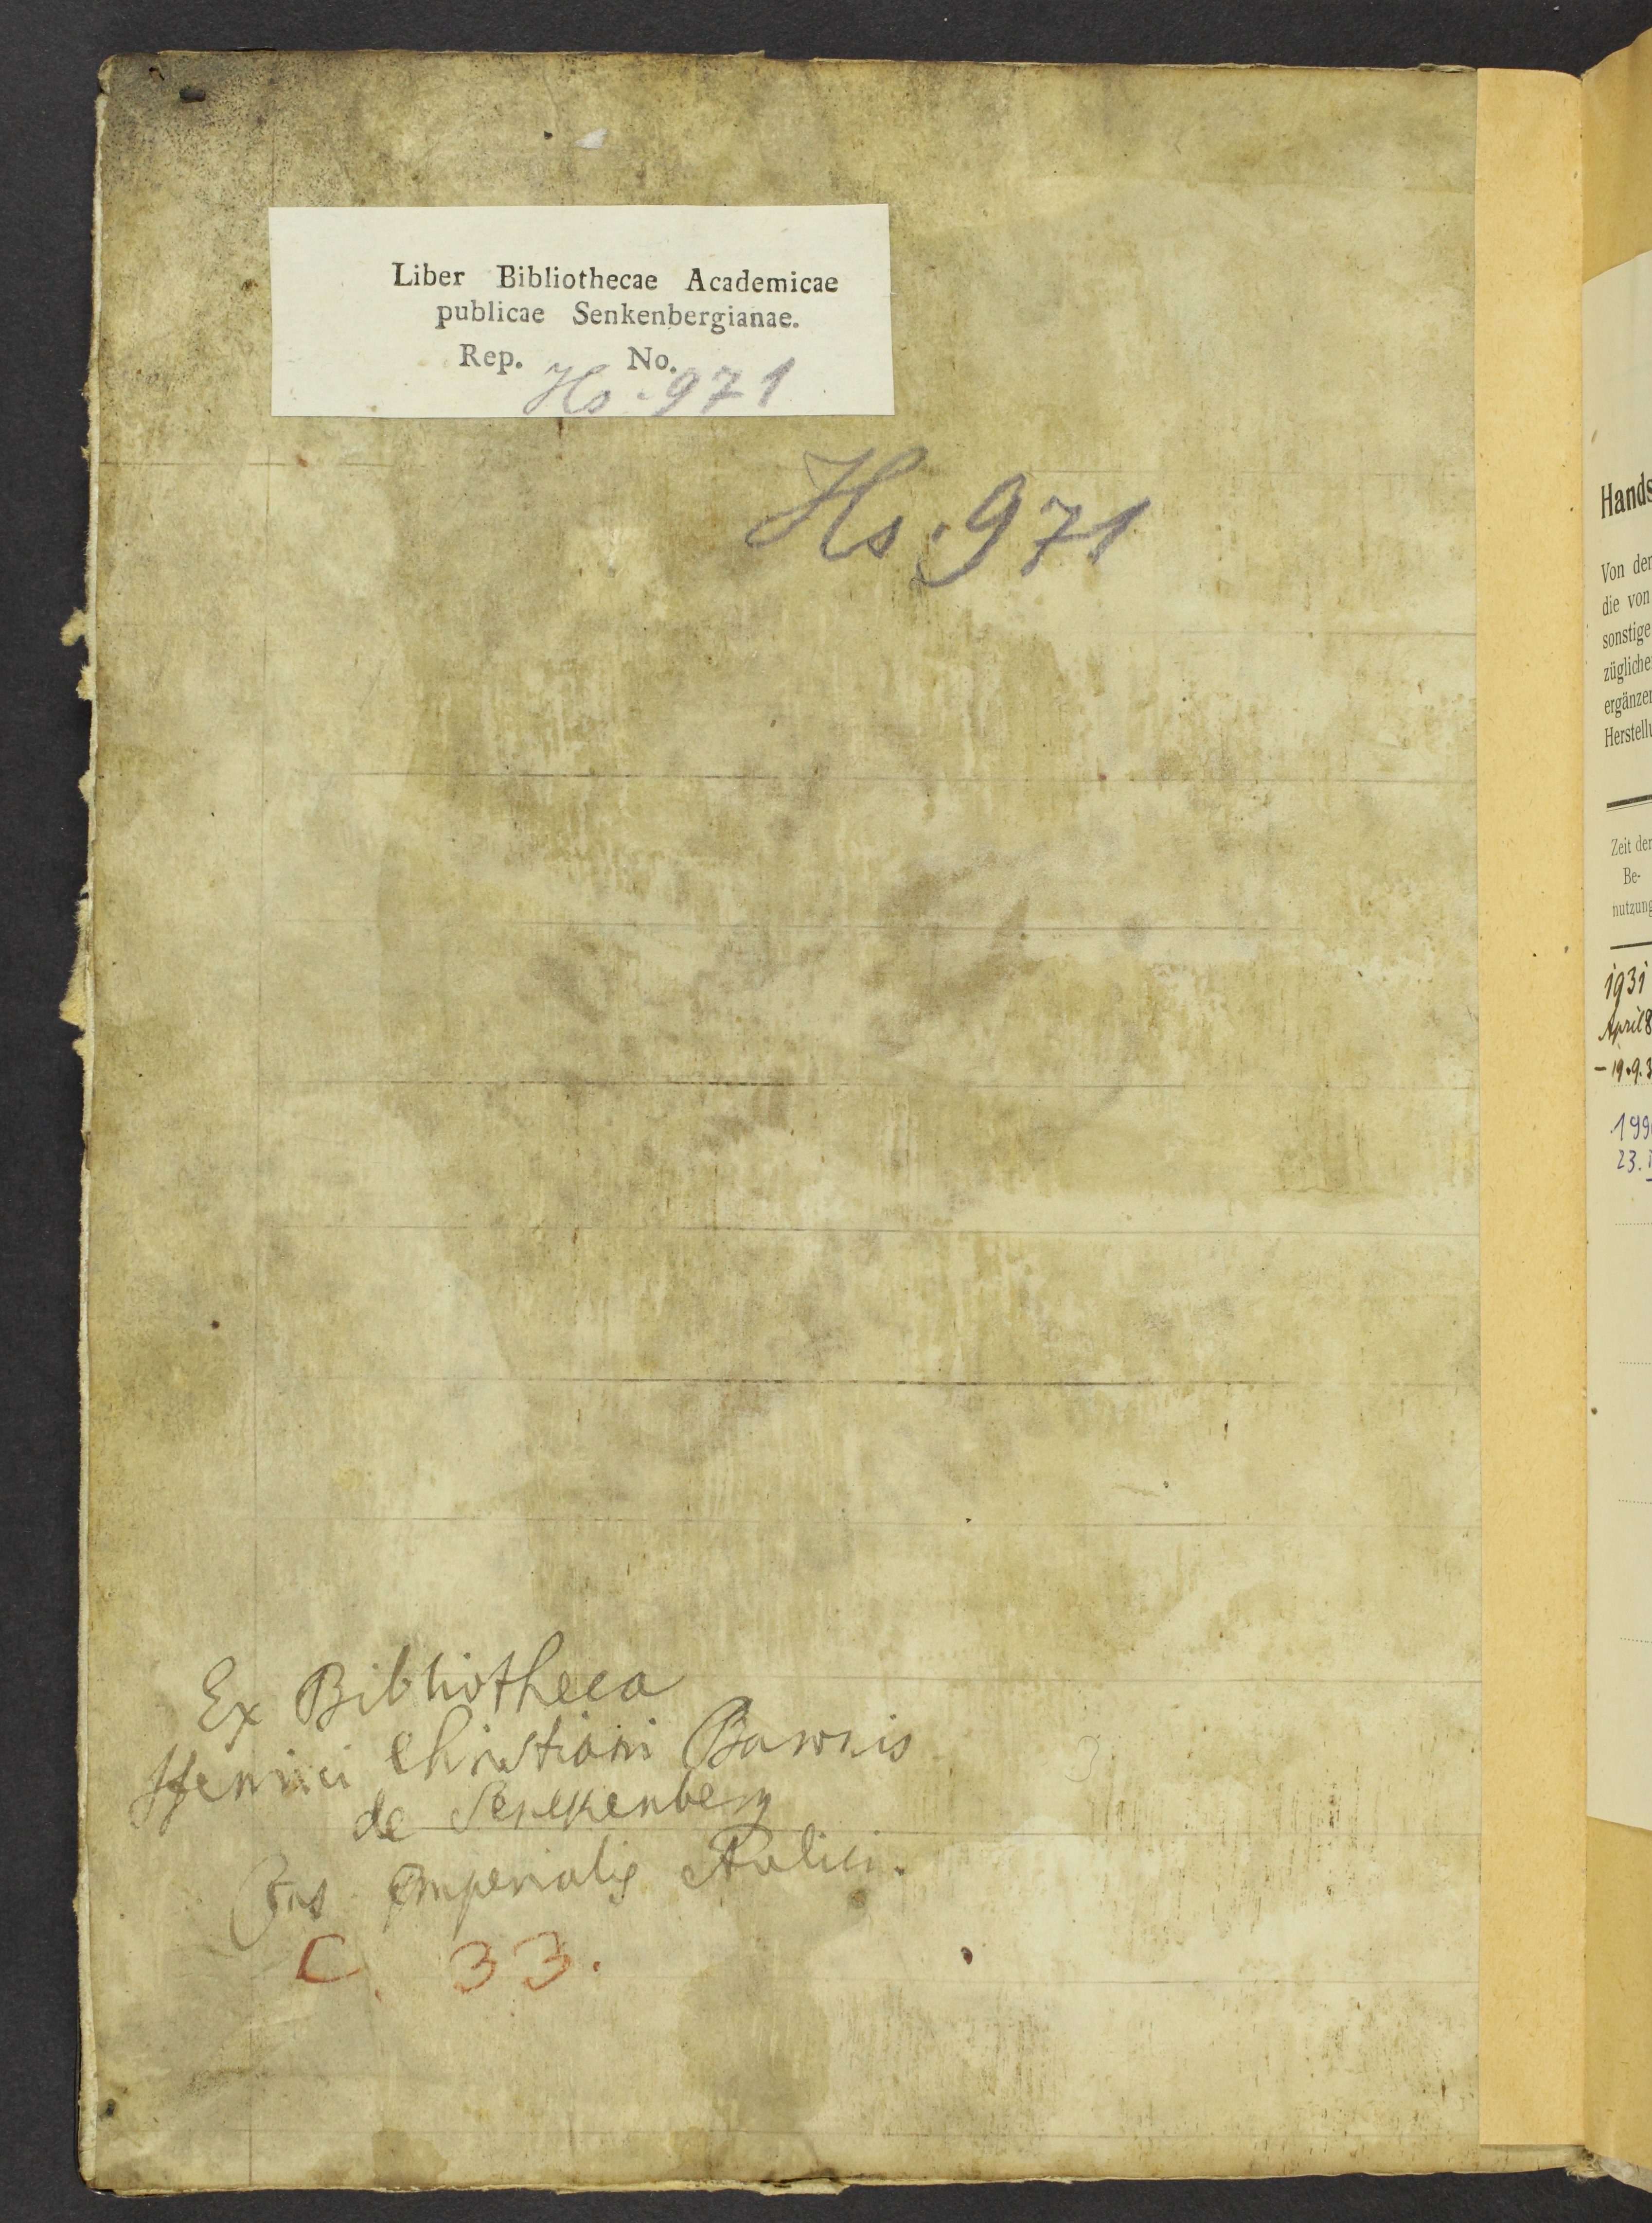 Liber Bibliothecae Academicae
publicae Senkenbergianae.
Rep. No.
Hs. 971
Hs. 971
Ex Bibliotheca
Henrici Christiani Baronis
de Senckenberg
Cons Imperialis Aulici.
C. 33.
Hands
Von der
die von
sonstige
züglicher
ergänzen
Herstellu
Zeit der
Be-
nutzung
1931
April 8
- 19.9.3
199
23.